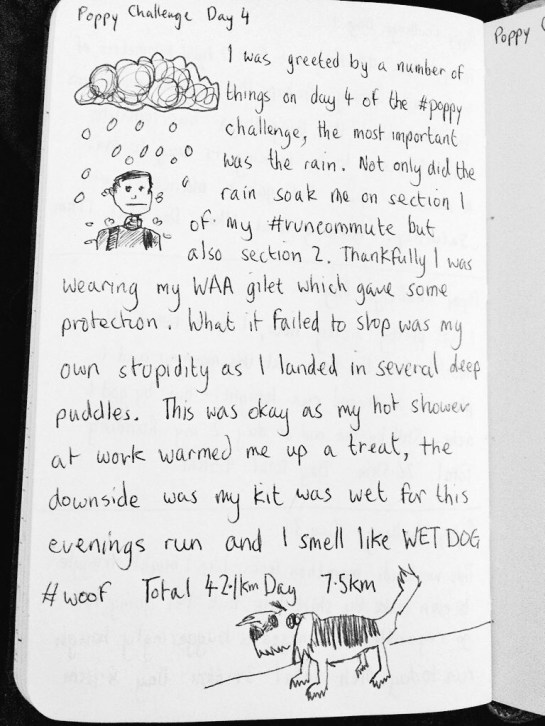 Poppy Challenge Day 4
Poppy C
I was greeted by a number of
things on day 4 of the #poppy
challenge, the most important
was the rain. Not only did the
rain soak me on section 1
of my #runcommute but
also section 2. Thankfully I was
wearing my WAA gilet which gave some
protection. What it failed to stop was my
own stupidity as I landed in several deep
puddles. This was okay as my hot shower
at work warmed me up a treat, the
downside was my kit was wet for this
evenings run and I smell like WET DOG
#woof Total 42.1km Day 7.5km